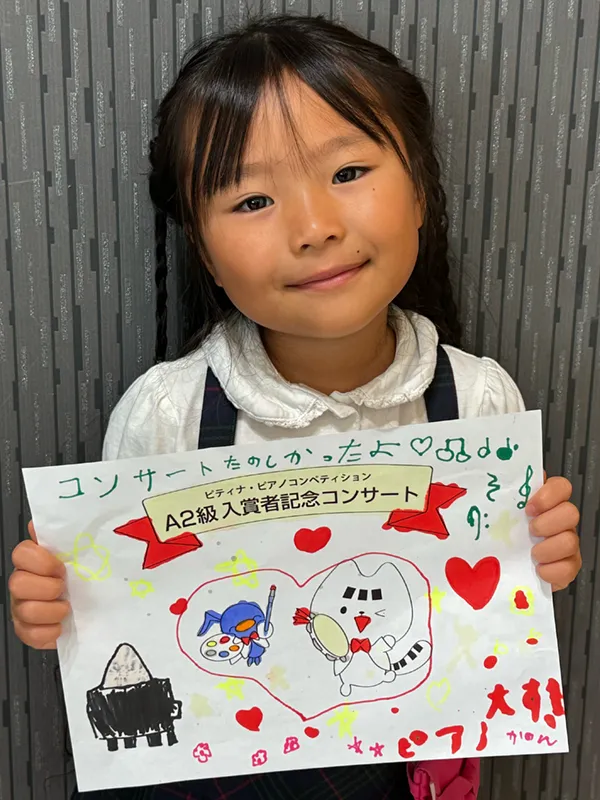 コンサートたのしかったよ
ピティナ・ピアノコンペティション
A2級 入賞者記念コンサート
ピアノ大すき
かのん